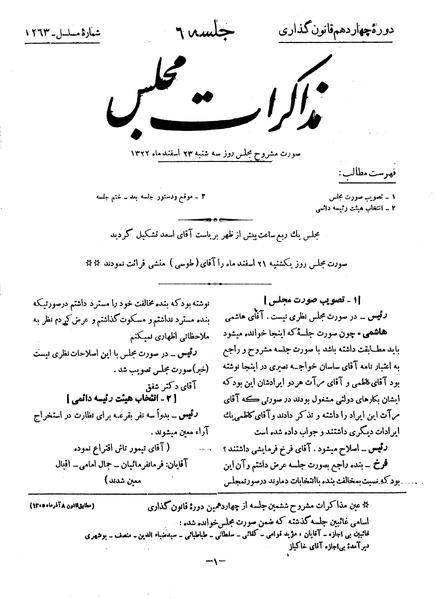 دورهٔ چهاردهم قانون گذاری
جلسه ۶
شمارهٔ مسلسل - ۱۲۶۳
مذاکرات مجلس
صورت مشروح مجلس روز سه شنبه ۲۳ اسفند ماه ۱۳۲۲
فهرست مطالب:
۱ - تصویب صورت مجلس
۲ - انتخاب هیئت رئیسه دائمی
۳ - موقع و دستور جلسه بعد - ختم جلسه
مجلس یك ربع ساعت پیش از ظهر بریاست آقای اسعد تشکیل گردید
صورت مجلس روز یکشنبه ۲۱ اسفند ماه را آقای (طوسی) منشی قرائت نمودند **
[۱ - تصویب صورت مجلس]
رئیس - در صورت مجلس نظری نیست. آقای هاشمی
هاشمی - چون صورت جلسهٔ که اینجا خوانده میشود
باید مطابقت داشته باشد با صورت جلسه مشروح و راجع
به اعتبار نامه آقای ساسان خواجه نصیری در اینجا نوشته
بود آقای کاظمی و آقای مرآت هر دو ایرادشان این بود که
ایشان بکارهای دولتی مشغول بودند در صورتی که آقای
مرآت این ایراد را داشته و تذکر دادند و آقای کاظمی یك
ایرادات دیگری داشتند و جواب داده شده است
رئیس - اصلاح میشود. آقای فرخ فرمایشی داشتند؟
فرخ - بنده راجع بصورت جلسه عرض داشتم و آن این
بود که نسبت بمخالفت بنده با انتخابات دماوند در صورت مجلس
نوشته بود که بنده مخالفت خود را مسترد داشتم در صورتیکه
بنده مسترد نداشتم و مسکوت گذاشتم و عرض کردم نظر به
ملاحظاتی اظهاری نمیکنم
رئیس - در صورت مجلس با این اصلاحات نظری نیست
(خیر) صورت مجلس تصویب شد.
آقای دکتر شفق
[۲ - انتخاب هیئت رئیسه دائمی]
رئیس - بدواً سه نفر بقرعه برای نظارت در استخراج
آراء معین میشوند.
(آقای تیمور تاش اقتراع نموده
آقایان: فرمانفرمائیان - جمال امامی - اقبال
معین شدند)
* عین مذاکرات مشروح ششمین جلسه از چهاردهمین دورهٔ قانون گذاری
(مطابق قانون ۸ آذر ماه ۱۳۰۵)
اسامی غائبین جلسه گذشته که ضمن صورت مجلس خوانده شده:
غائبین بی اجازه - آقایان: مؤید قوامی - کفائی - سلطانی - طباطبائی - سید ضیاء الدین - منصف - بوشهری
دیر آمدهٔ بی اجازه آقای خاکباز
-۱-